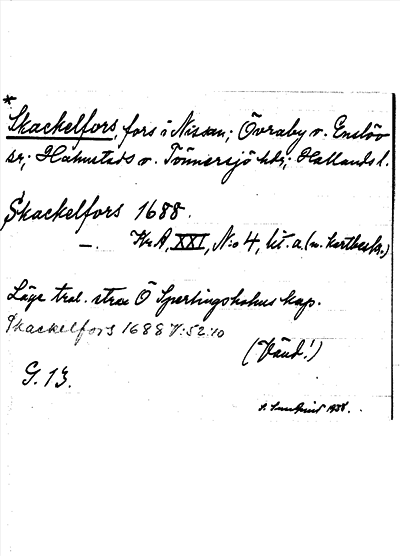 *
Skackelfors, fors i Nissan; Övraby o. Enslöv
sn; Halmstads o. Tönnersjö hdr; Hallands l.
Skackelfors 1688.
— Kr A, XXI, N:o 4, lit. a (m. kartbeskr.)
Läge trol. strax Ö Sperlingsholms kap.
Skackelfors 1688 V:52:10
(Vänd!)
G. 13.
1938.